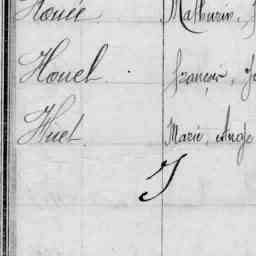 Houée Mathurin,
Houel François,
Huet Marie, Ange
J